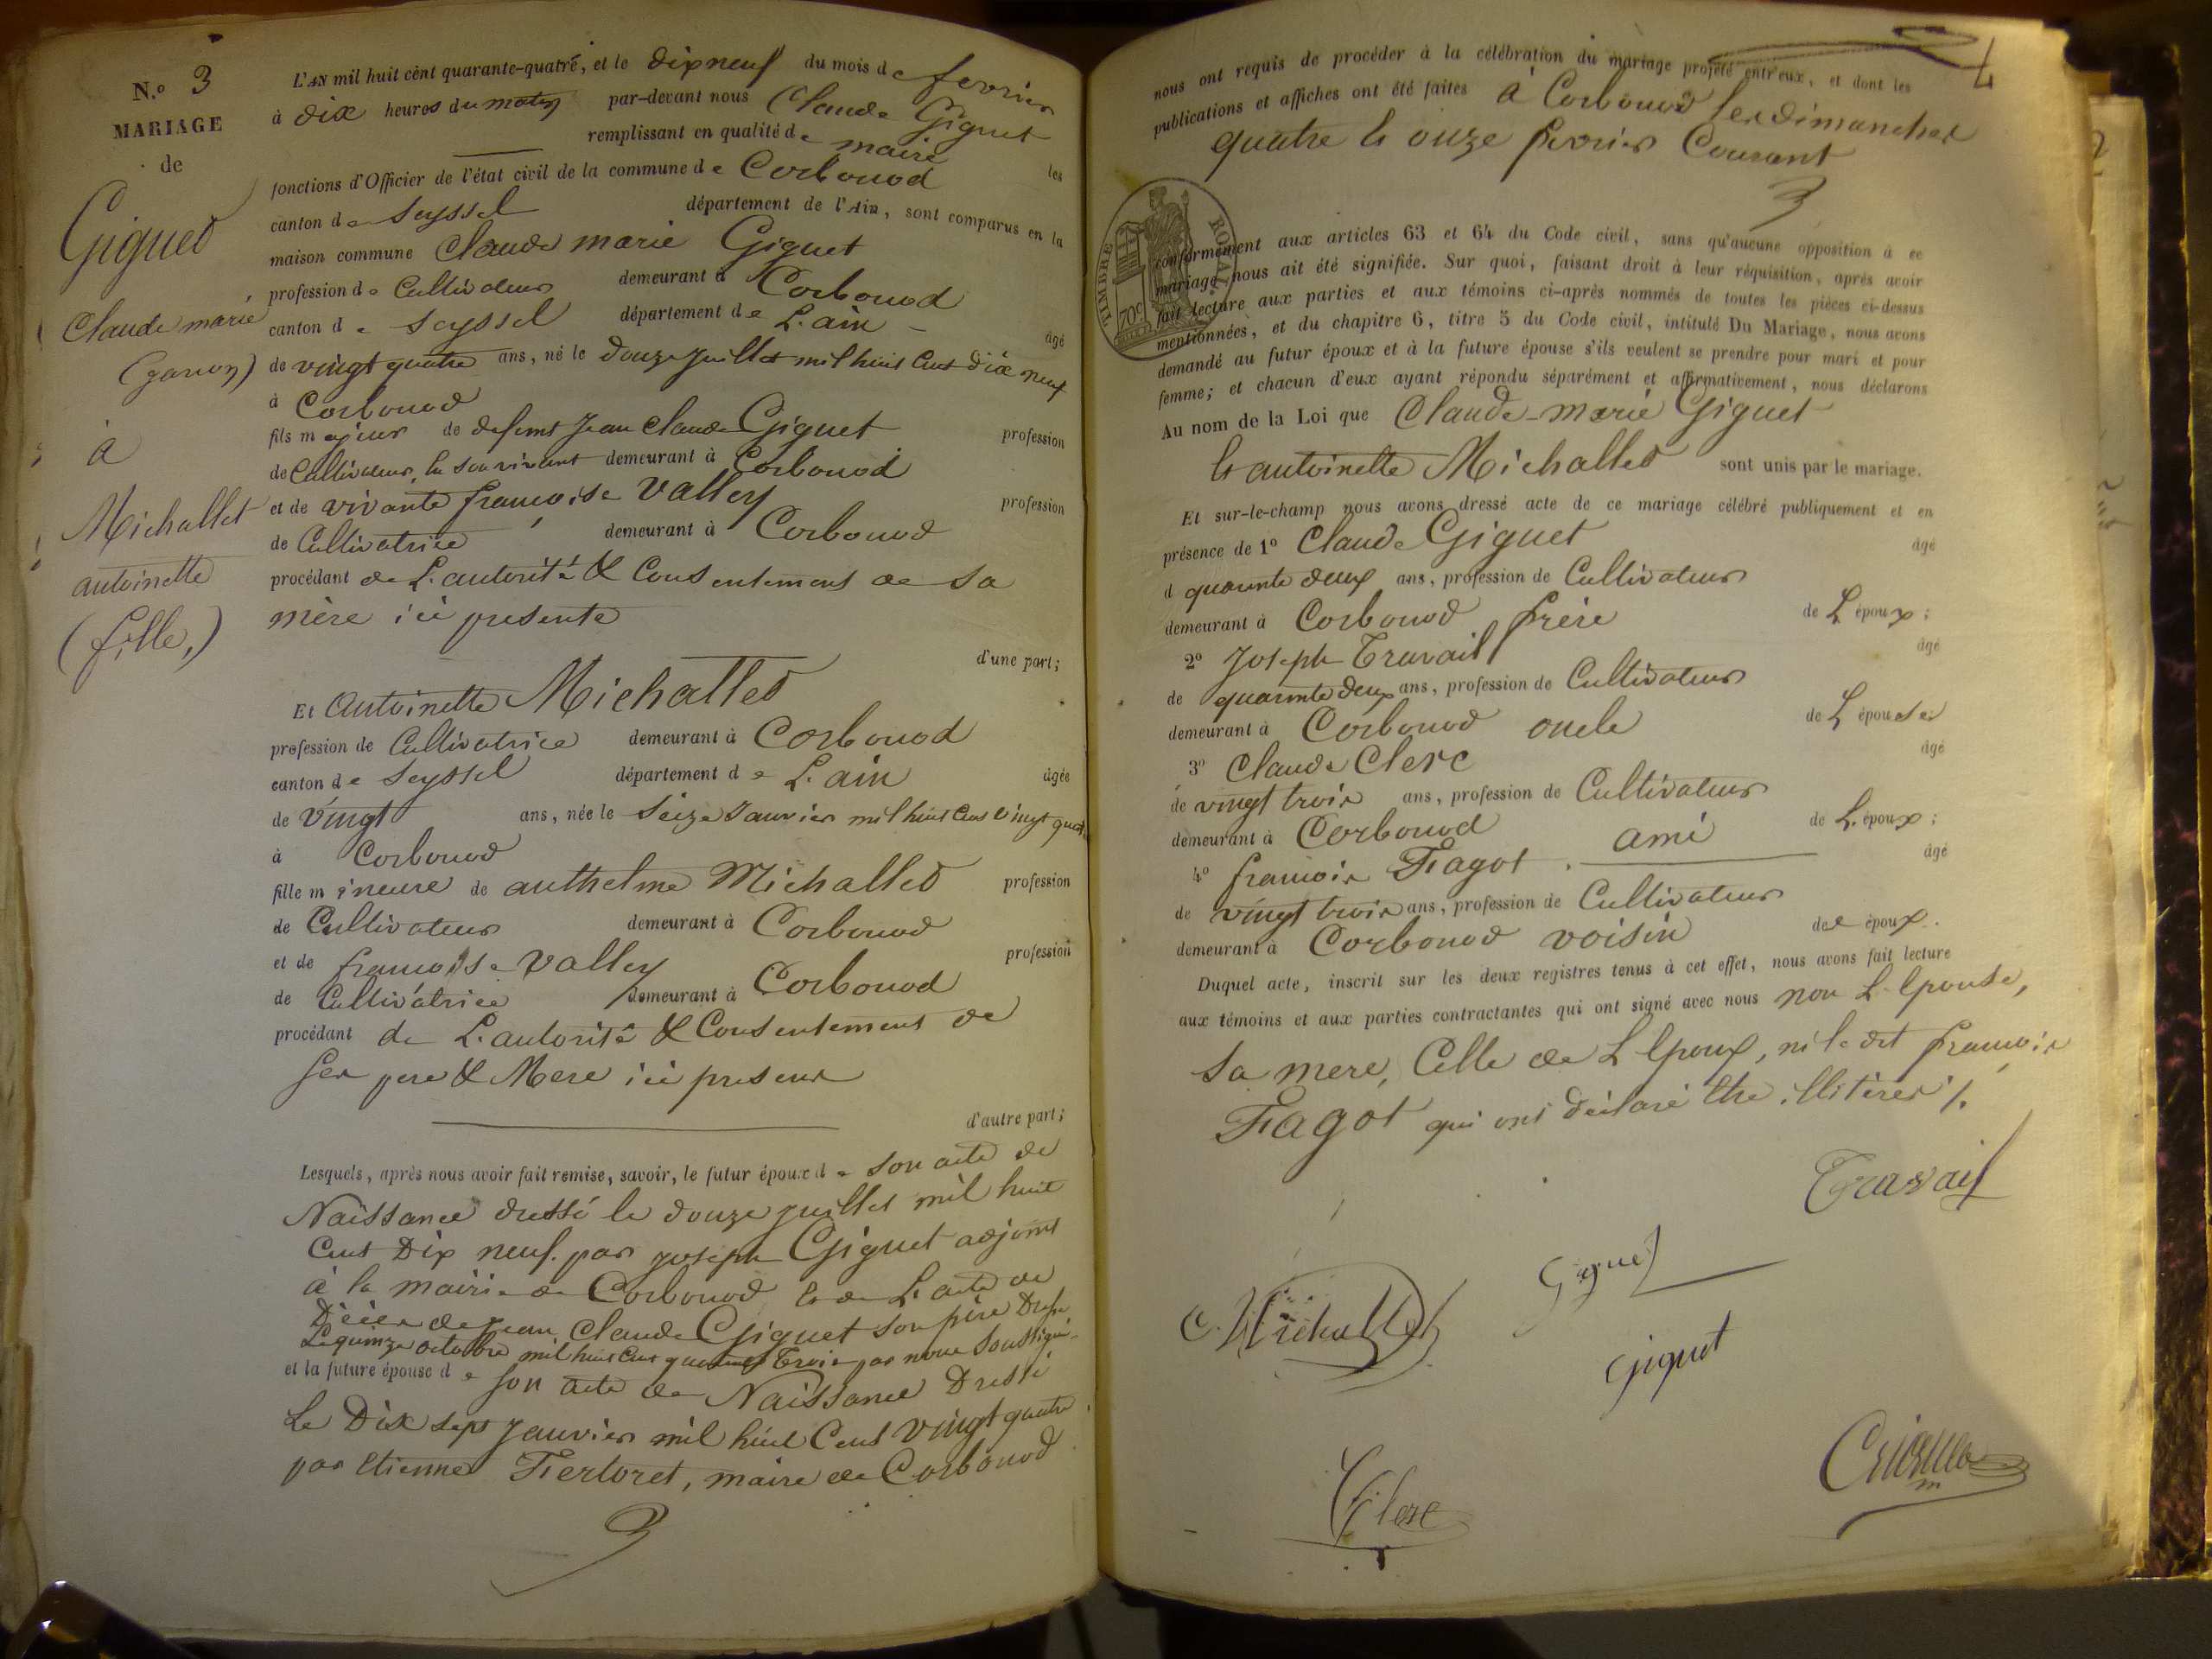 N.º 3
MARIAGE
de
Giguet
Claude marie
(garçon)
à
Michallet
antoinette
(fille,)
L'AN mil huit cent quarante-quatre, et le dix neuf du mois de fevrier
à dix heures du matin par-devant nous Claude Giguet
remplissant en qualité de maire les
fonctions d'Officier de l'état civil de la commune de Corbonod
canton de Seyssel département de l'Ain, sont comparus en la
maison commune Claude marie Giguet
profession de Cultivateur demeurant à Corbonod
canton de Seyssel département de L'ain âgé
de vingt quatre ans, né le douze juillet mil huit Cent dix neuf
à Corbonod
fils majeur de defunt Jean Claude Giguet profession
de Cultivateur, lu son vivant demeurant à Corbonod
et de vivante françoise Valley profession
de Cultivatrice demeurant à Corbonod
procédant de L'autorité & Consentement de sa
mère ici presente
d'une part;
Et Antoinette Michallet
profession de Cultivatrice demeurant à Corbonod
canton de Seyssel département de L'ain âgée
de vingt ans, née le Seize Janvier mil huit Cent vingt quat
à Corbonod
fille mineure de anthelme Michallet profession
de Cultivateur demeurant à Corbonod
et de françoise Valley profession
de Cultivatrice demeurant à Corbonod
procédant de L'autorité & Consentement de
ses pere & Mere ici presens
d'autre part;
Lesquels, après nous avoir fait remise, savoir, le futur époux de son acte de
Naissance dressé le douze juillet mil huit
Cent Dix neuf. par joseph Giguet adjoint
à la mairie de Corbonod et de L'acte de
Décès de jean Claude Giguet son père Dressé
Le quinze octobre mil huit Cent quarante Trois par nous Soussigné
et la future épouse de son acte de Naissance Dressé
Le Dix sept Janvier mil huit Cent vingt quatre
par Etienne Fertoret, maire de Corbonod
4
nous ont requis de procéder à la célébration du mariage projeté entr'eux, et dont les
publications et affiches ont été faites à Corbonod les dimanches
quatre & onze fevrier Courant
TIMBRE ROYAL
70c
conformément aux articles 63 et 64 du Code civil, sans qu'aucune opposition à ce
mariage nous ait été signifiée. Sur quoi, faisant droit à leur réquisition, après avoir
fait lecture aux parties et aux témoins ci-après nommés de toutes les pièces ci-dessus
mentionnées, et du chapitre 6, titre 5 du Code civil, intitulé Du Mariage, nous avons
demandé au futur époux et à la future épouse s'ils veulent se prendre pour mari et pour
femme; et chacun d'eux ayant répondu séparément et affirmativement, nous déclarons
Au nom de la Loi que Claude-marie Giguet
& antoinette Michallet sont unis par le mariage.
Et sur-le-champ nous avons dressé acte de ce mariage célébré publiquement et en
présence de 1º Claude Giguet âgé
d quarante deux ans, profession de Cultivateur
demeurant à Corbonod frère de L'époux;
2º Joseph Travail âgé
de quarante deux ans, profession de Cultivateur
demeurant à Corbonod oncle de L'épouse
3º Claude Clerc âgé
de vingt trois ans, profession de Cultivateur
demeurant à Corbonod ami de L'époux;
4º françois Fagot âgé
de vingt trois ans, profession de Cultivateur
demeurant à Corbonod voisin des époux.
Duquel acte, inscrit sur les deux registres tenus à cet effet, nous avons fait lecture
aux témoins et aux parties contractantes qui ont signé avec nous non L'épouse,
sa mere, Celle de L'époux, ni le dit françois
Fagot qui ont déclaré être illitérés /.
Travail
Giguet
C. Michallet
Giguet
Clerc